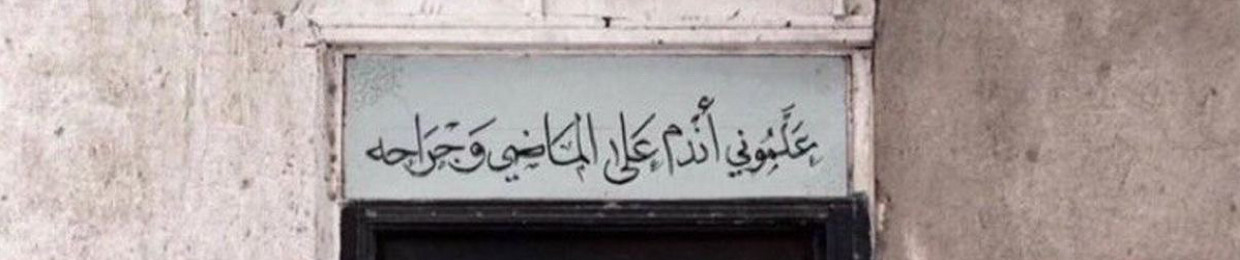 عَلَّمُوني أنْدَم عَلى المَاضي وَجْرَاحه